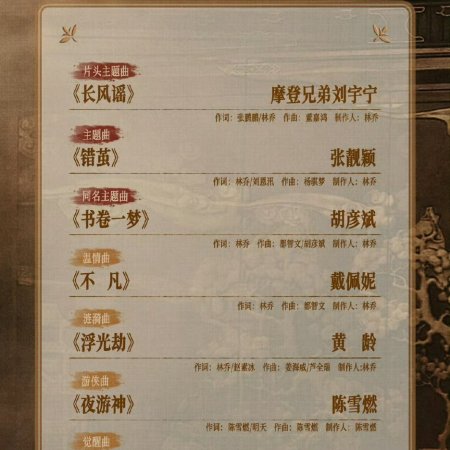 片头主题曲
《长风谣》 摩登兄弟刘宇宁
作词：张鹏鹏/林乔 作曲：董嘉鸿 制作人：林乔
主题曲
《错茧》 张靓颖
作词：林乔/刘恩汛 作曲：杨秉音 制作人：林乔
同名主题曲
《书卷一梦》 胡彦斌
作词：林乔 作曲：都智文/胡彦斌 制作人：林乔
温情曲
《不 凡》 戴佩妮
作词：林乔 作曲：都智文 制作人：林乔
涟漪曲
《浮光劫》 黄 龄
作词：林乔/赵素冰 作曲：姜海威/芦全瑞 制作人：林乔
游侠曲
《夜游神》 陈雪燃
作词：陈雪燃/明天 作曲：陈雪燃 制作人：陈雪燃
觉醒曲